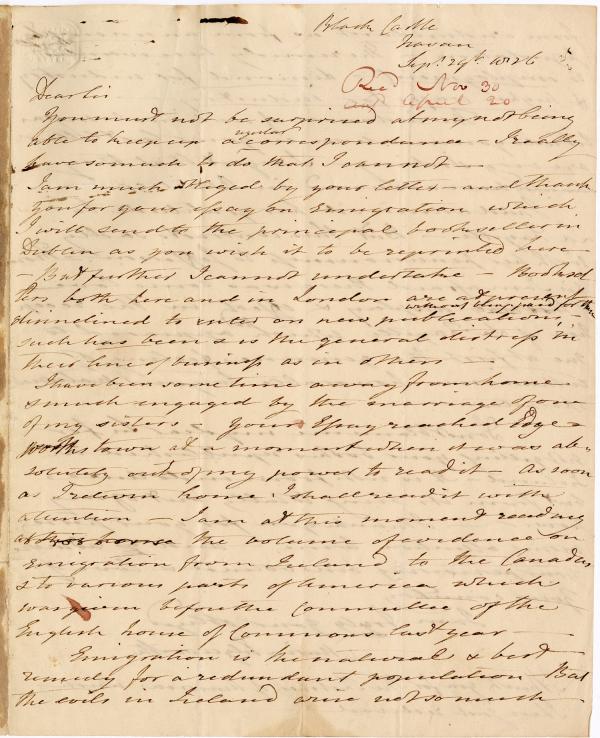 Black Castle
Navan
Sepr. 29th 1826
Recd Nov 30
and April 20
Dear Sir
You must not be surprised at my not being
able to keep up a regular correspondence – I really
have so much to do that I cannot –
I am much obliged by your letter – and thank
you for your Essay on Emigration which
I will send to the principal bookseller in
Dublin as you wish it to be reprinted here –
– But further I cannot undertake – Booksel
lers both here and in London are at present
disinclined to enter on new publications, without being paid for them
such has been & is the general distress in
their line of business as in others –
I have been some time away from home
& much engaged by the marriage of one
of my sisters – Your Essay reached Edge=
worthstown at a moment when it was ab=
solutely out of my power to read it – As soon
as I return home I shall read it with
attention – I am at this moment reading
the volume of evidence on
Emigration from Ireland to the Canadas
& to various parts of America which
was given before the Committee of the
English house of Commons last year –
Emigration is the natural & best
remedy for a redundant population But
the evils in Ireland arise not so much